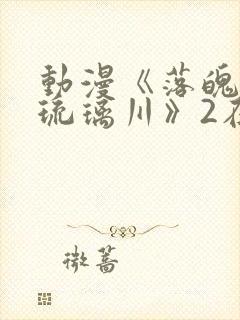 動漫《落魄
琉璃川》2在
微蔷